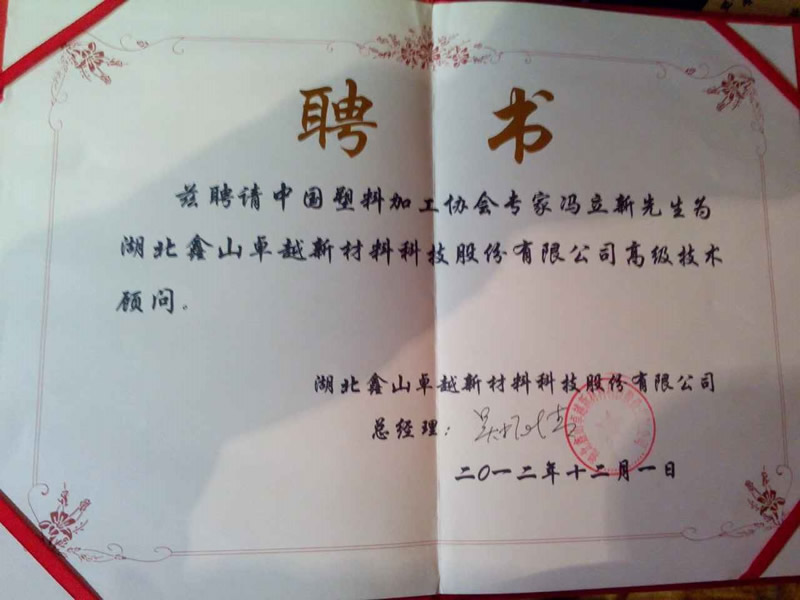 聘 书
兹聘请中国塑料加工协会专家冯立新先生为
湖北鑫山卓越新材料科技股份有限公司高级技术
顾问。
湖北鑫山卓越新材料科技股份有限公司
总经理：
二〇一二年十二月一日